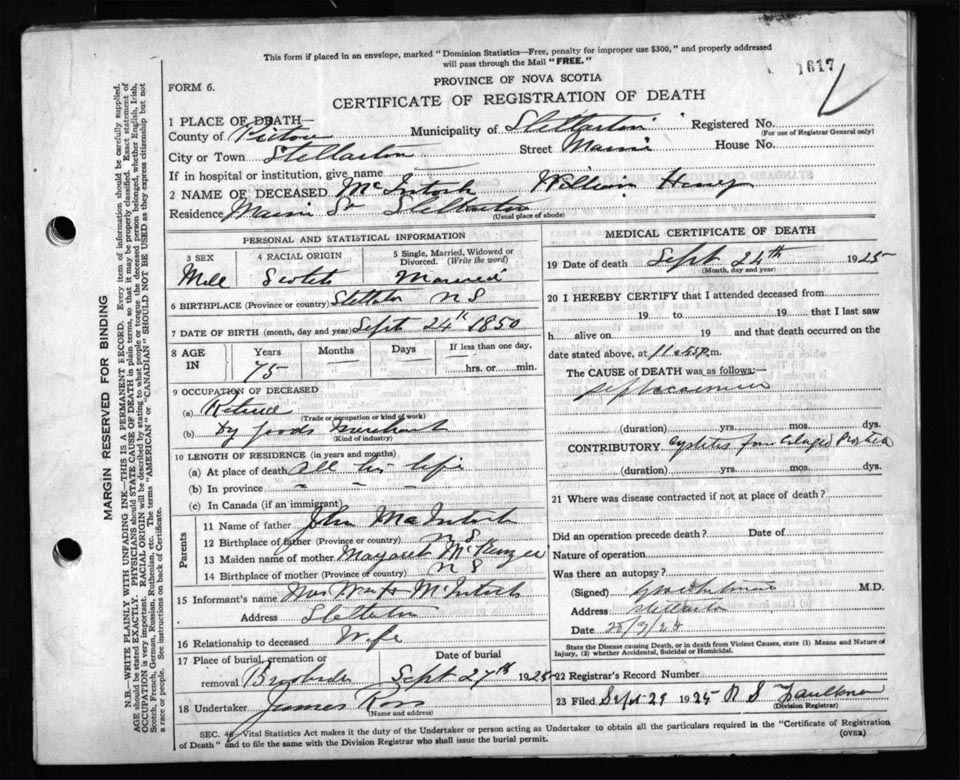 This form if placed in an envelope, marked "Dominion Statistics—Free, penalty for improper use $300," and properly addressed
will pass through the Mail "FREE."
1617
PROVINCE OF NOVA SCOTIA
FORM 6.
CERTIFICATE OF REGISTRATION OF DEATH
1 PLACE OF DEATH—
County of Pictou Municipality of Stellarton Registered No.
(For use of Registrar General only)
City or Town Stellarton Street Main House No.
If in hospital or institution, give name
2 NAME OF DECEASED McIntosh William Henry
Residence Main St Stellarton
(Usual place of abode)
PERSONAL AND STATISTICAL INFORMATION
3 SEX 4 RACIAL ORIGIN 5 Single, Married, Widowed or Divorced. (Write the word)
Male Scotch Married
6 BIRTHPLACE (Province or country) N S
7 DATE OF BIRTH (month, day and year) Sept 24th 1850
8 AGE IN Years Months Days If less than one day,
75 hrs. or min.
9 OCCUPATION OF DECEASED
(a) Retired
(Trade or occupation or kind of work)
(b) Dy Goods Merchant
(Kind of industry)
10 LENGTH OF RESIDENCE (in years and months)
(a) At place of death all his life
(b) In province " " "
(c) In Canada (if an immigrant)
Parents
11 Name of father John McIntosh
12 Birthplace of father (Province or country) N S
13 Maiden name of mother Margaret McKenzee
14 Birthplace of mother (Province or country) N S
15 Informant's name Mrs Wm H McIntosh
Address Stellarton
16 Relationship to deceased Wife
17 Place of burial, cremation or removal Date of burial
Sept 27th 1925
18 Undertaker James Ross
(Name and address)
MEDICAL CERTIFICATE OF DEATH
19 Date of death Sept 24th 1925
(Month, day and year)
20 I HEREBY CERTIFY that I attended deceased from
19 to 19 that I last saw
h alive on 19 and that death occurred on
date stated above, at 11.45 P.m.
The CAUSE OF DEATH was as follows:—
(duration) yrs. mos. dys.
CONTRIBUTORY Cystitis from
(duration) yrs. mos. dys.
21 Where was disease contracted if not at place of death?
Did an operation precede death? Date of
Nature of operation
Was there an autopsy?
(Signed) M.D.
Address Stellarton
Date 28/9/25
State the Disease causing Death, or in death from Violent Causes, state (1) Means and Nature of
Injury, (2) whether Accidental, Suicidal or Homicidal.
22 Registrar's Record Number
23 Filed Sept 29 1925 R S Faulkner
(Division Registrar)
SEC. Vital Statistics Act makes it the duty of the Undertaker or person acting as Undertaker to obtain all the particulars required in the "Certificate of Registration
of Death" and to file the same with the Division Registrar who shall issue the burial permit. (OVER)
MARGIN RESERVED FOR BINDING
N.B.—WRITE PLAINLY WITH UNFADING INK—THIS IS A PERMANENT RECORD. Every item of information should be carefully supplied.
AGE should be stated EXACTLY. PHYSICIANS should STATE CAUSE OF DEATH in plain terms, so that it may be properly classified. Exact statement of
OCCUPATION is very important. RACIAL ORIGIN will be described by stating to what people or tongue the deceased person belonged, whether English, Irish,
Scotch, French, German, Russian, Ruthenian, etc. The terms "AMERICAN" or "CANADIAN" SHOULD NOT BE USED as they express citizenship but not
a race or people. See instructions on back of Certificate.